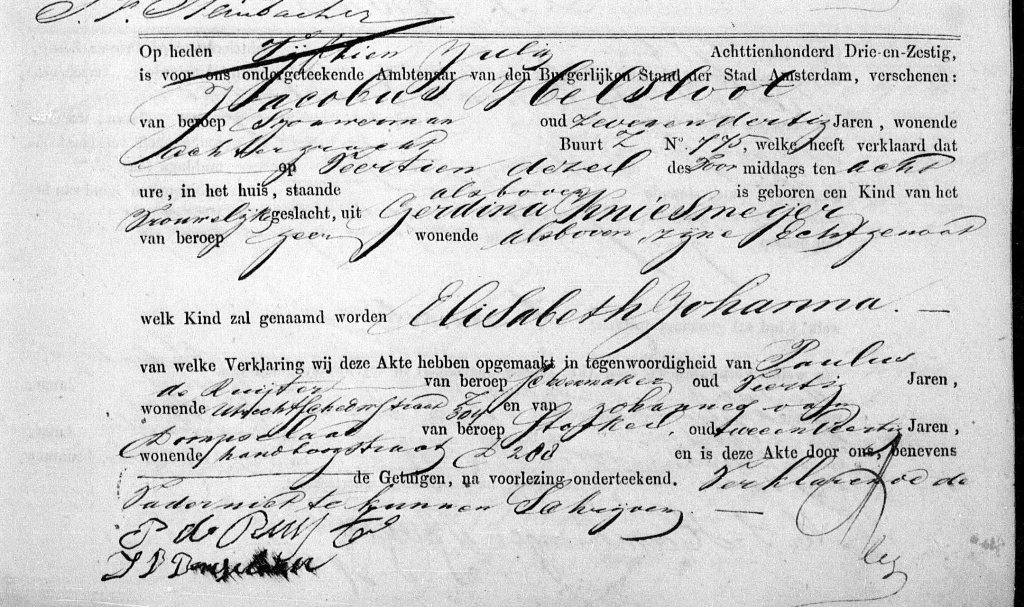 Op heden Vijftien Julij Achttienhonderd Drie-en-Zestig,
is voor ons ondergeteekende Ambtenaar van den Burgerlijken Stand der Stad Amsterdam, verschenen:
Jacobus Helsloot
van beroep Sjouwerman oud zevenendertig Jaren, wonende
Achtergracht Buurt Z No. 775, welke heeft verklaard dat
op Veertien dezer des Voor middags ten acht
ure, in het huis, staande alsboven is geboren een Kind van het
Vrouwelijk geslacht, uit Gerdina Kniesmeijer
van beroep Geen wonende alsboven, zijne Echtgenoot
welk Kind zal genaamd worden Elisabeth Johanna. —
van welke Verklaring wij deze Akte hebben opgemaakt in tegenwoordigheid van Paulus
de Ruijter van beroep oud Veertig Jaren,
wonende Utrechtschedwarsstraat Z 309 en van Johannes van
Dompselaar van beroep oud tweeenveertig Jaren,
wonende handboogstraat Z 200 en is deze Akte door ons, benevens
de Getuigen, na voorlezing onderteekend. Verklarende de
Vader niet te kunnen Schrijven. —
P de Ruijter